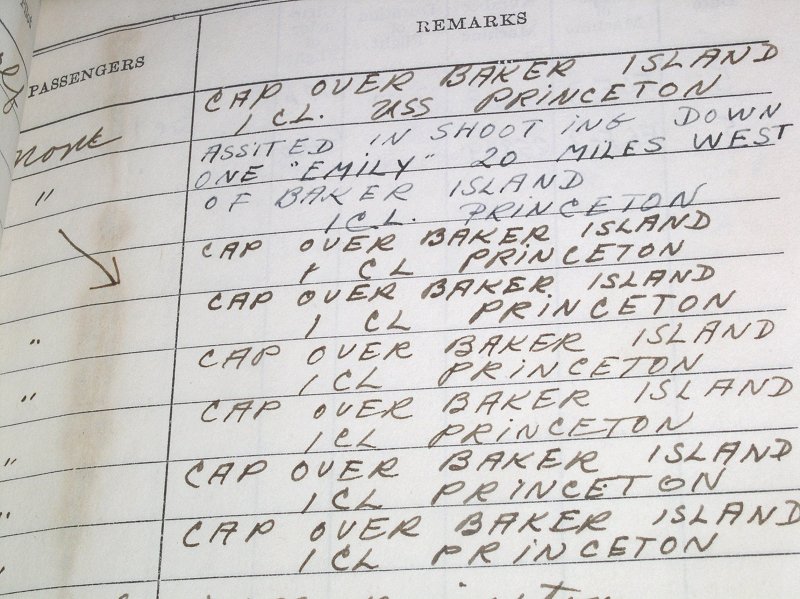 REMARKS
PASSENGERS
CAP OVER BAKER ISLAND
1 CL. USS PRINCETON
none
ASSITED IN SHOOTING DOWN
ONE "EMILY" 20 MILES WEST
"
OF BAKER ISLAND
1 CL. PRINCETON
CAP OVER BAKER ISLAND
1 CL PRINCETON
CAP OVER BAKER ISLAND
1 CL PRINCETON
"
CAP OVER BAKER ISLAND
1 CL PRINCETON
"
CAP OVER BAKER ISLAND
1 CL PRINCETON
"
CAP OVER BAKER ISLAND
1 CL PRINCETON
"
CAP OVER BAKER ISLAND
1 CL PRINCETON
"